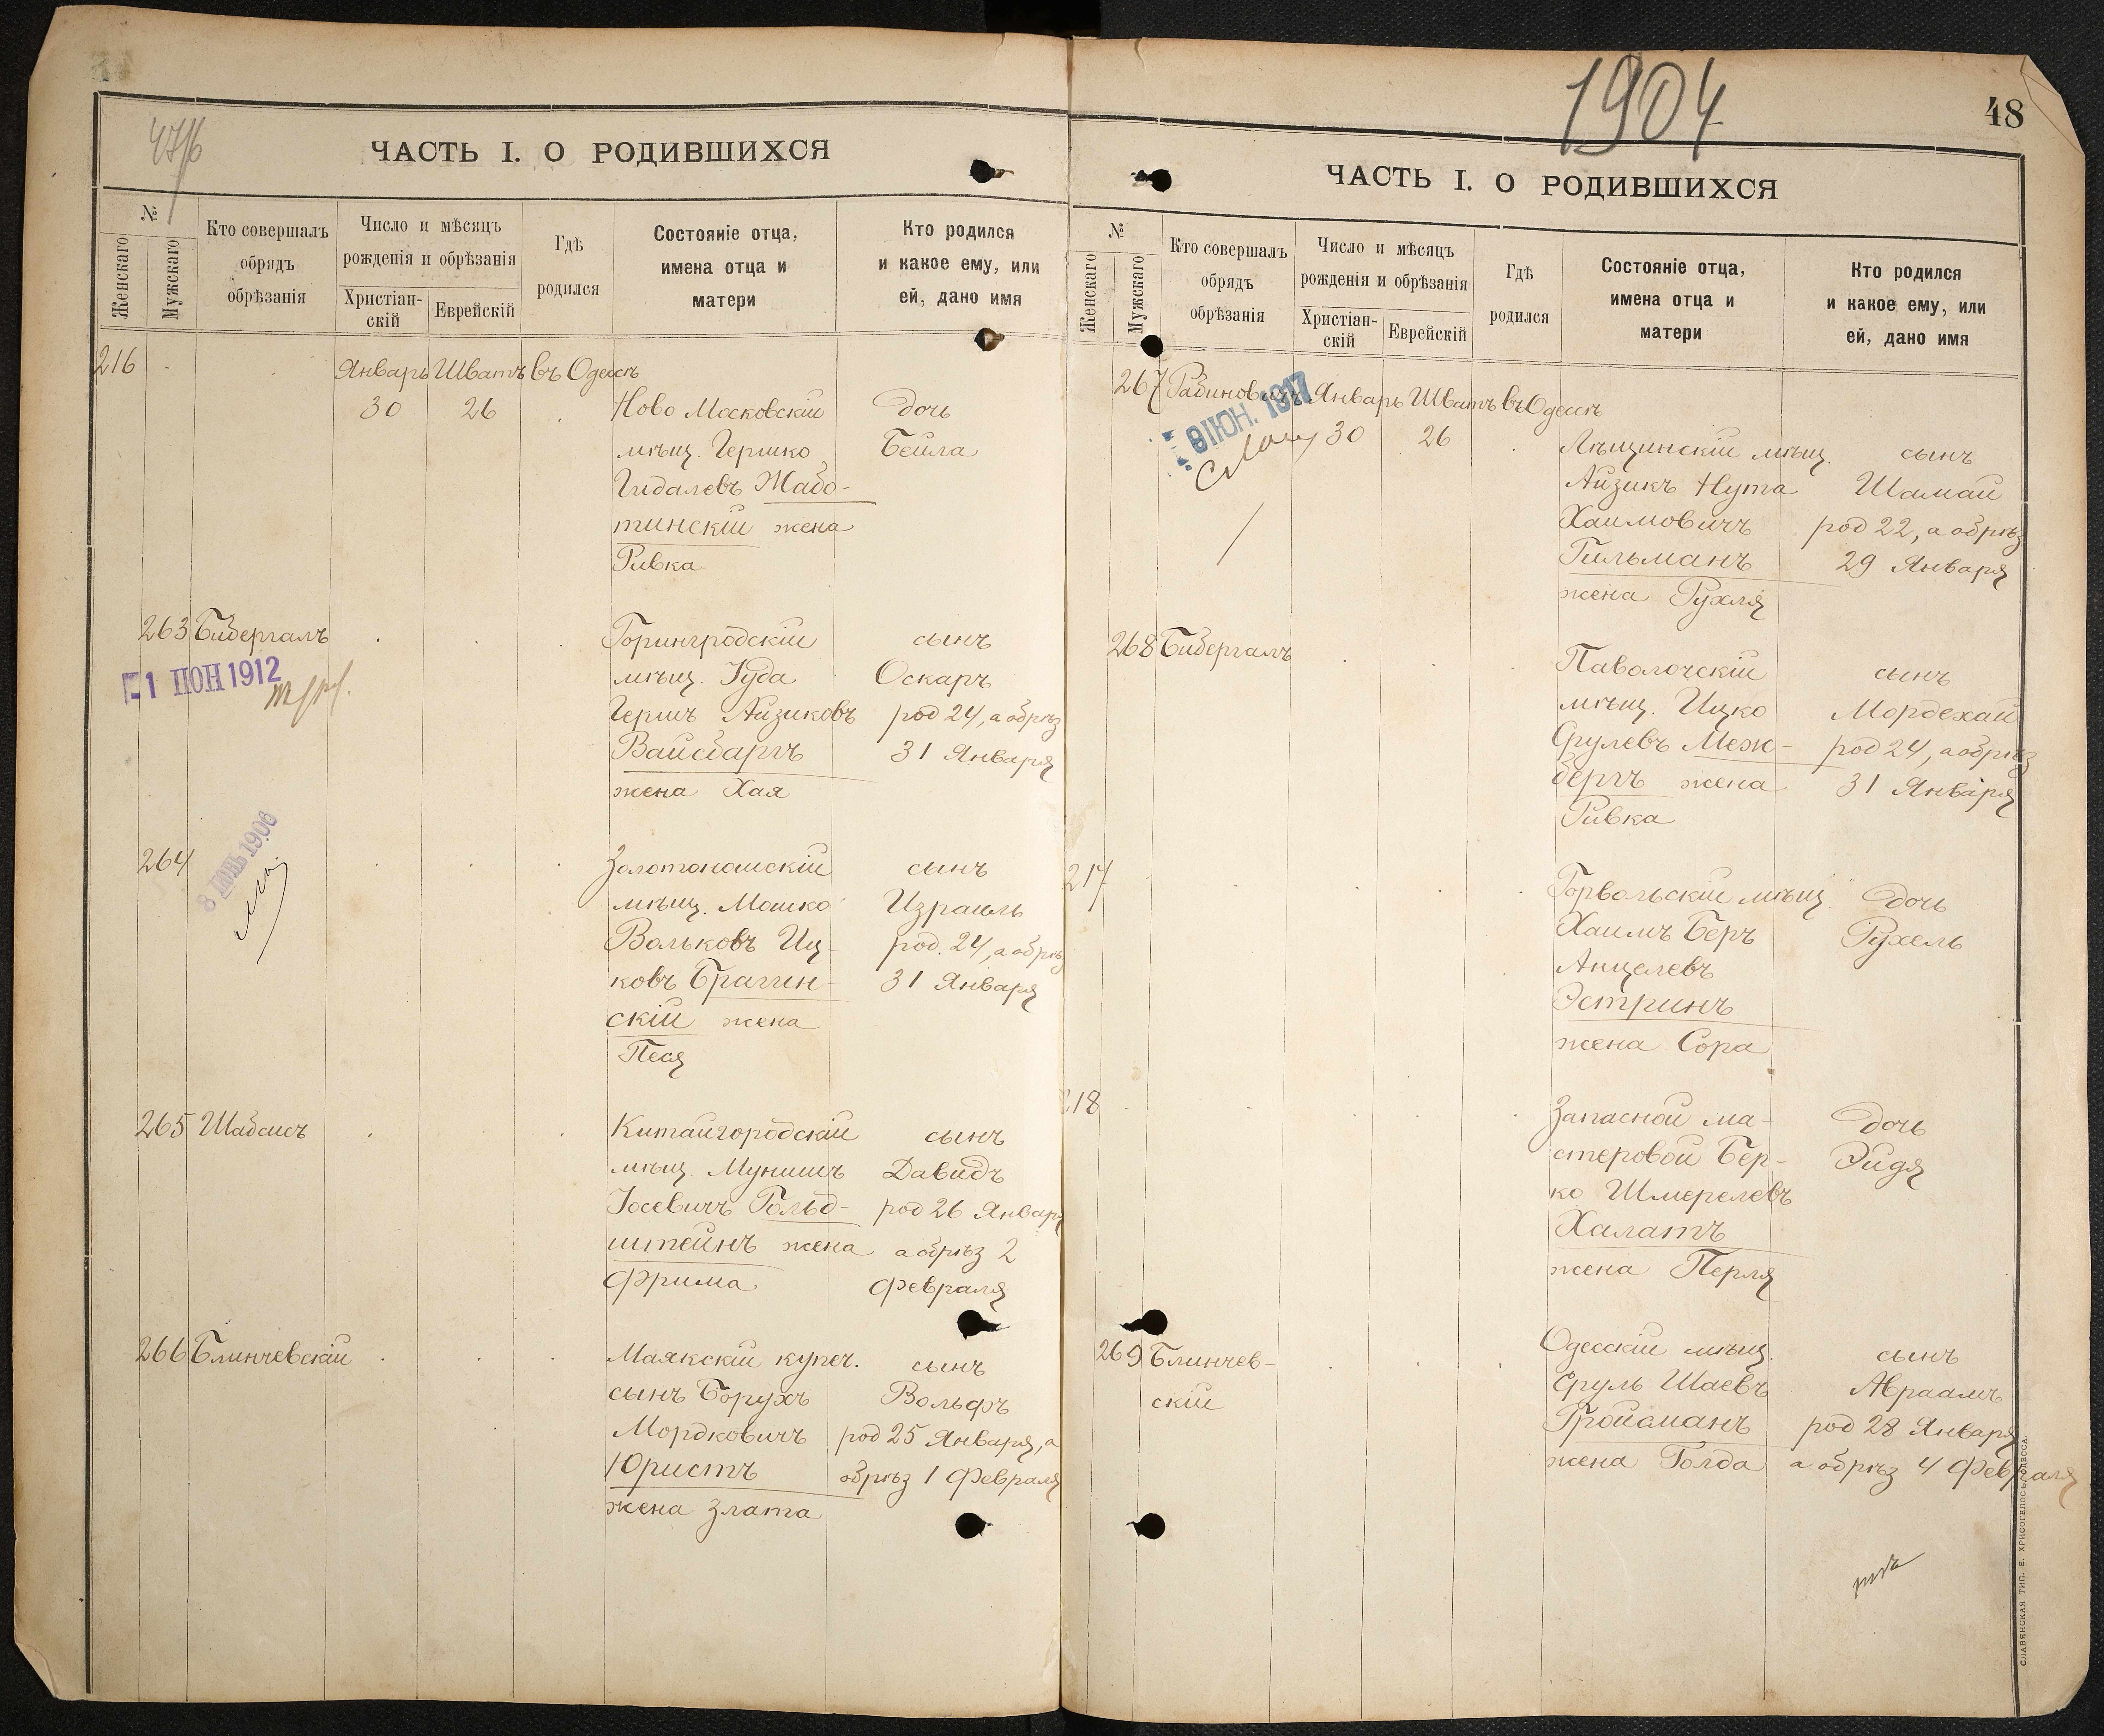 ЧАСТЬ I. О РОДИВШИХСЯ
№
Женскаго
Мужскаго
Кто совершалъ
обрядъ
обрѣзанія
Число и мѣсяцъ
рожденія и обрѣзанія
Христіан-
скій
Еврейскій
Гдѣ
родился
Состояніе отца,
имена отца и
матери
Кто родился
и какое ему, или
ей, дано имя
216 Январь Шватъ въ Одессѣ
30 26 Ново Московскій дочь
мѣщ. Гершко Бейла
Гидалевъ Жабо-
тинскій жена
Ривка
263 Бибергалъ Горингродскій сынъ
1 ІЮН 1912 мѣщ. Іуда Оскаръ
Гершъ Айзиковъ род 24, а обрѣз
Вайсбаргъ 31 Января
жена Хая
264 Золотоношскій сынъ
8 1906 мѣщ. Мошко Израиль
Вольковъ Иц- род. 24, а обрѣз
ковъ Брагин- 31 Января
скій жена
Песя
265 Шабсисъ Китайгородскій сынъ
мѣщ. Мунишъ Давидъ
Іосевичъ Гольд- род 26 Января
штейнъ жена а обрѣз 2
Фрима Февраля
266 Блинчевскій Маякскій купеч. сынъ
сынъ Борухъ Вольфъ
Мордковичъ род 25 Января, а
Юристъ обрѣз 1 Февраля
жена Злата
1904
48
ЧАСТЬ I. О РОДИВШИХСЯ
№
Женскаго
Мужскаго
Кто совершалъ
обрядъ
обрѣзанія
Число и мѣсяцъ
рожденія и обрѣзанія
Христіан-
скій
Еврейскій
Гдѣ
родился
Состояніе отца,
имена отца и
матери
Кто родился
и какое ему, или
ей, дано имя
267 Рабиновичъ Январь Шватъ въ Одессѣ
ІЮН. 1917
30 26 Лѣщинскій мѣщ. сынъ
Айзикъ Нута Шамай
Хаимовичъ род 22, а обрѣз
Гильманъ 29 Января
жена Рухля
268 Бибергалъ Паволочскій сынъ
мѣщ. Ицко Мордехай
Срулевъ Меж- род 24, а обрѣз
бергъ жена 31 Января
Ривка
217 Горвольскій мѣщ. дочь
Хаимъ Беръ Рухель
Анцелевъ
Эстринъ
жена Сора
218 Запасной ма- дочь
стеровой Бер- Эйдя
ко Шмерелевъ
Халатъ
жена Перля
269 Блинчев- Одесскій мѣщ. сынъ
скій Сруль Шаевъ Авраамъ
Гройсманъ род 28 Января
жена Голда а обрѣз 4 Февраля
СЛАВЯНСКАЯ ТИП. Е. ХРИСОГЕЛОСЪ ОДЕССА.